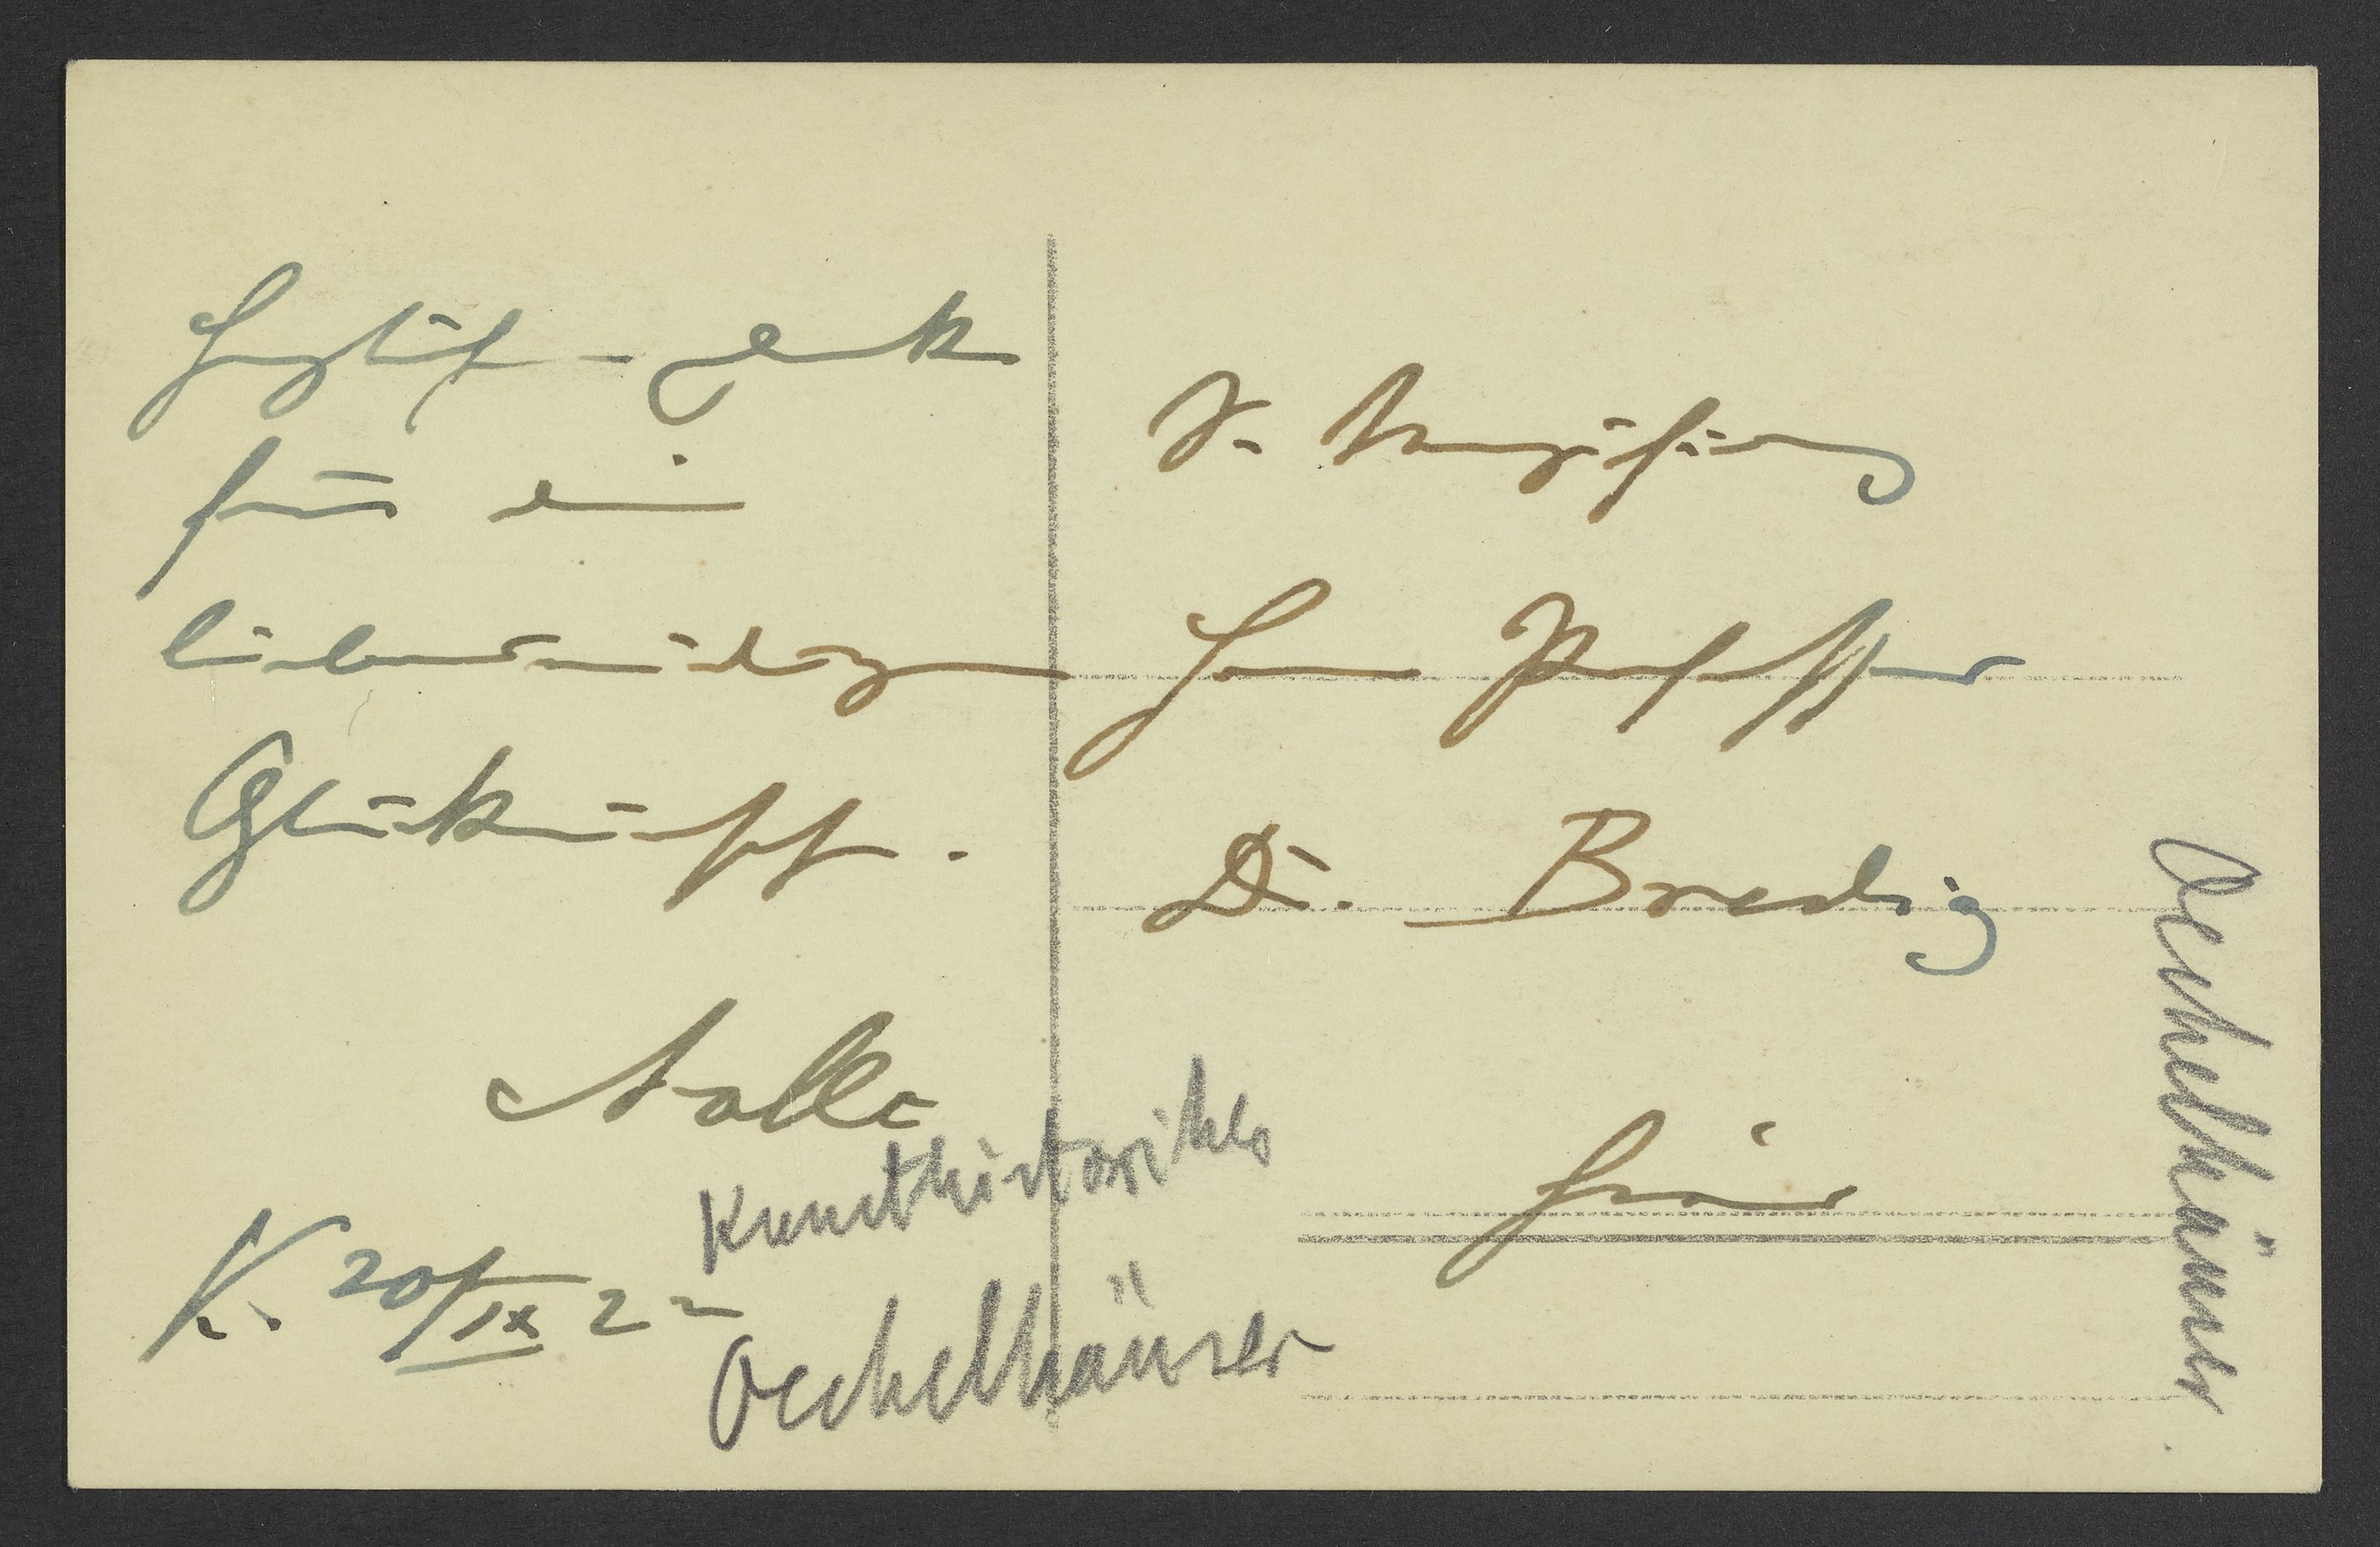 Herzlichen Dank
für die
liebenswürdigen
Glückwünsche.
K. 20/IX 22
Sr. Magnifizenz
Herrn Professor
Dr. Bredig
hier
Kunsthistoriker
Oechelhäuser
Oechelhäuser